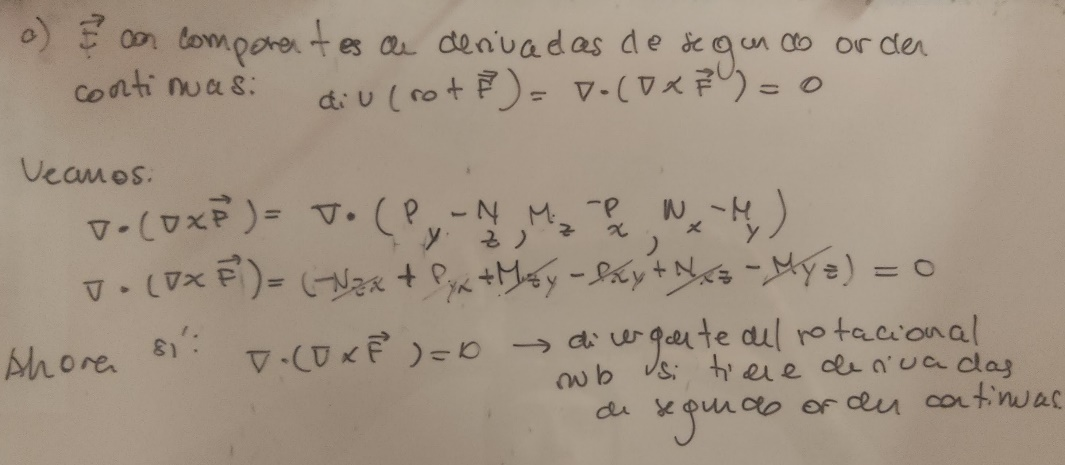 a) F⃗ con componentes de derivadas de segundo orden
continuas: div (rot F⃗) = ∇·(∇×F⃗) = 0
Veamos:
∇·(∇×F⃗) = ∇·(P_y - N_z, M_z - P_x, N_x - M_y)
∇·(∇×F⃗) = (-N_zx + P_yx + M_zy - P_xy + N_xz - M_yz) = 0
Ahora sí: ∇·(∇×F⃗) = 0 → divergente del rotacional
nulo si tiene derivadas
de segundo orden continuas